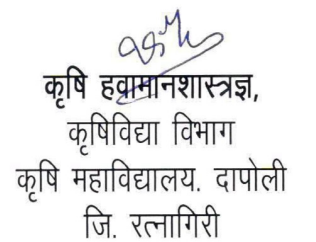 कृषि हवामानशास्त्रज्ञ,
कृषिविद्या विभाग
कृषि महाविद्यालय. दापोली
जि. रत्नागिरी